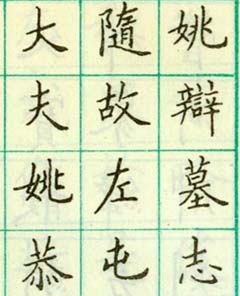 姚辯墓志
隨故左屯
大夫姚恭